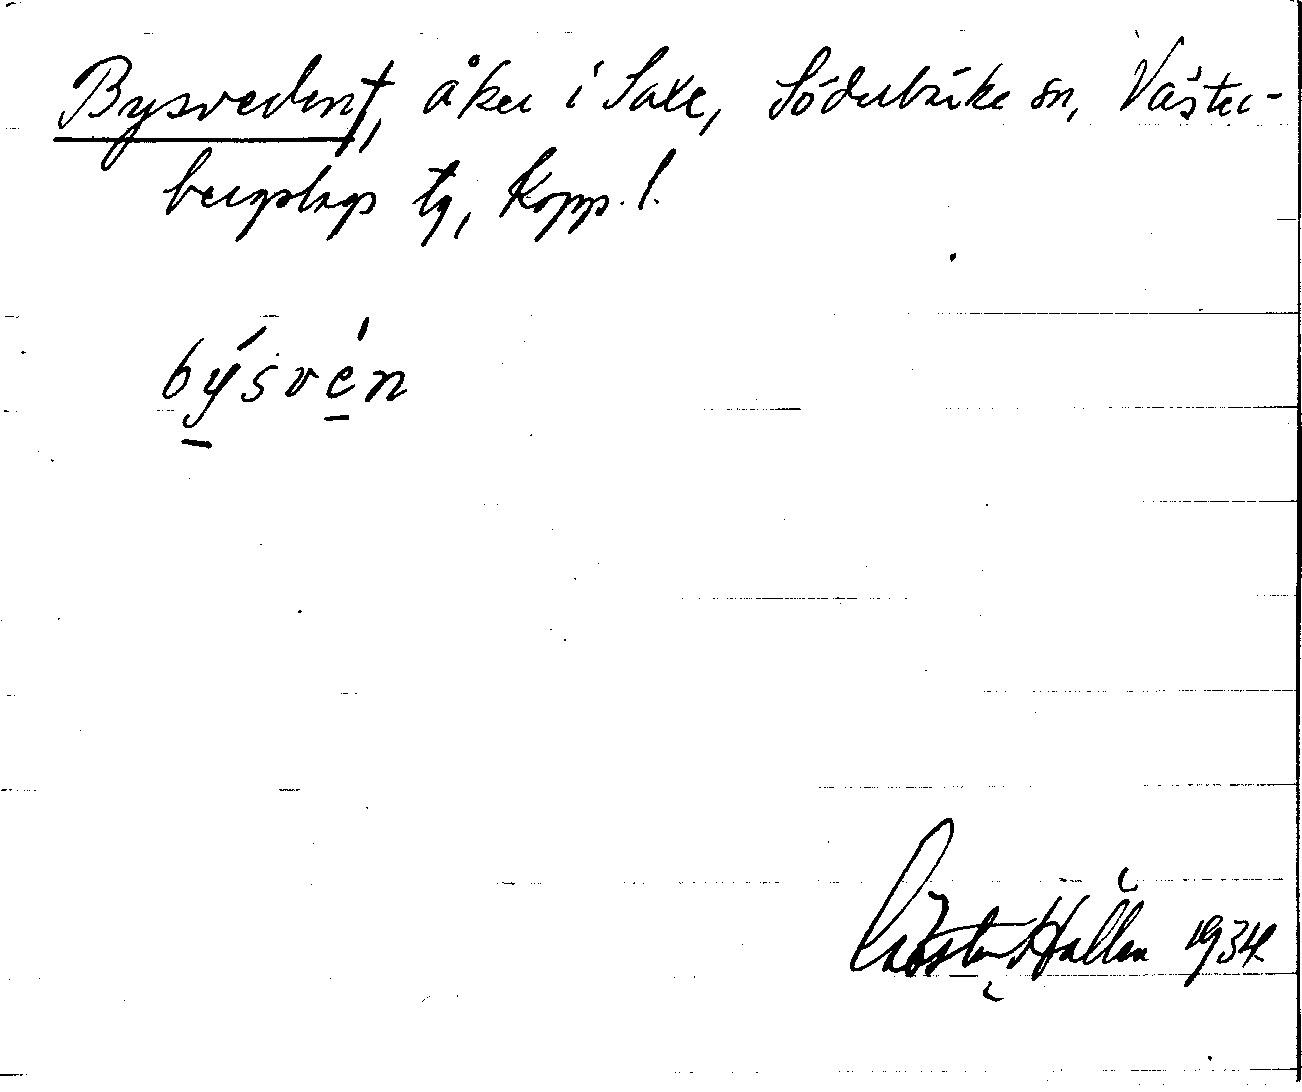 Bysveden†, åker i Saxe, Söderbärke sn, Väster-
bergslags tg, Kopp. l.
býsvén
Hallen 1934